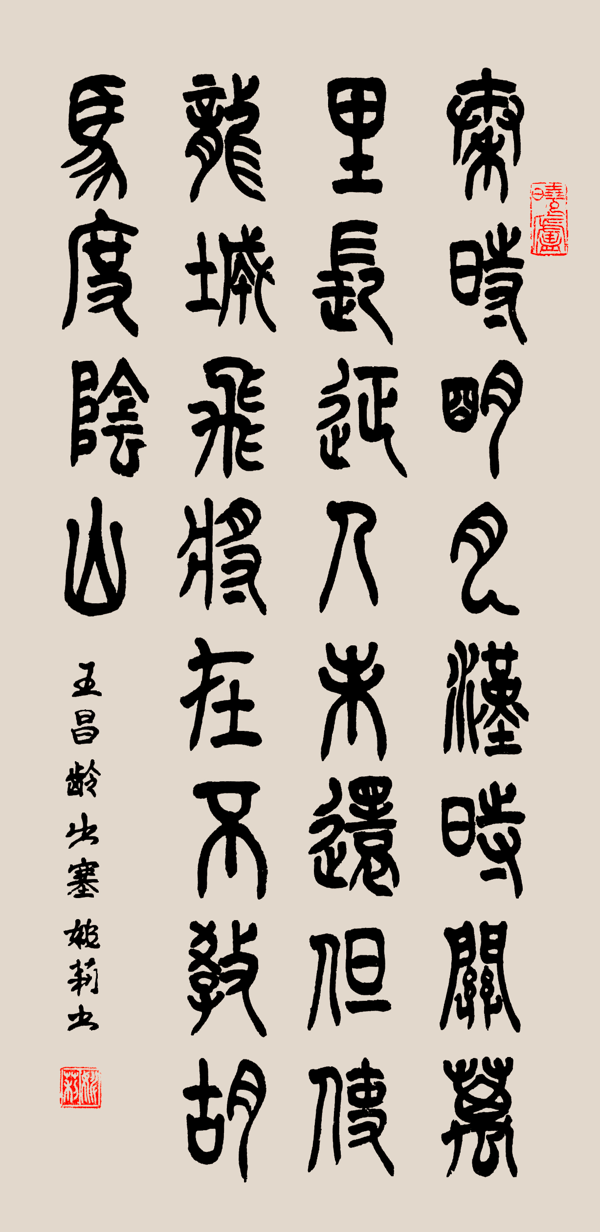 曦廬
秦時明月漢時關萬
里長征人未還但使
龍城飛將在不教胡
馬度陰山
王昌齡出塞 姚莉书
姚莉